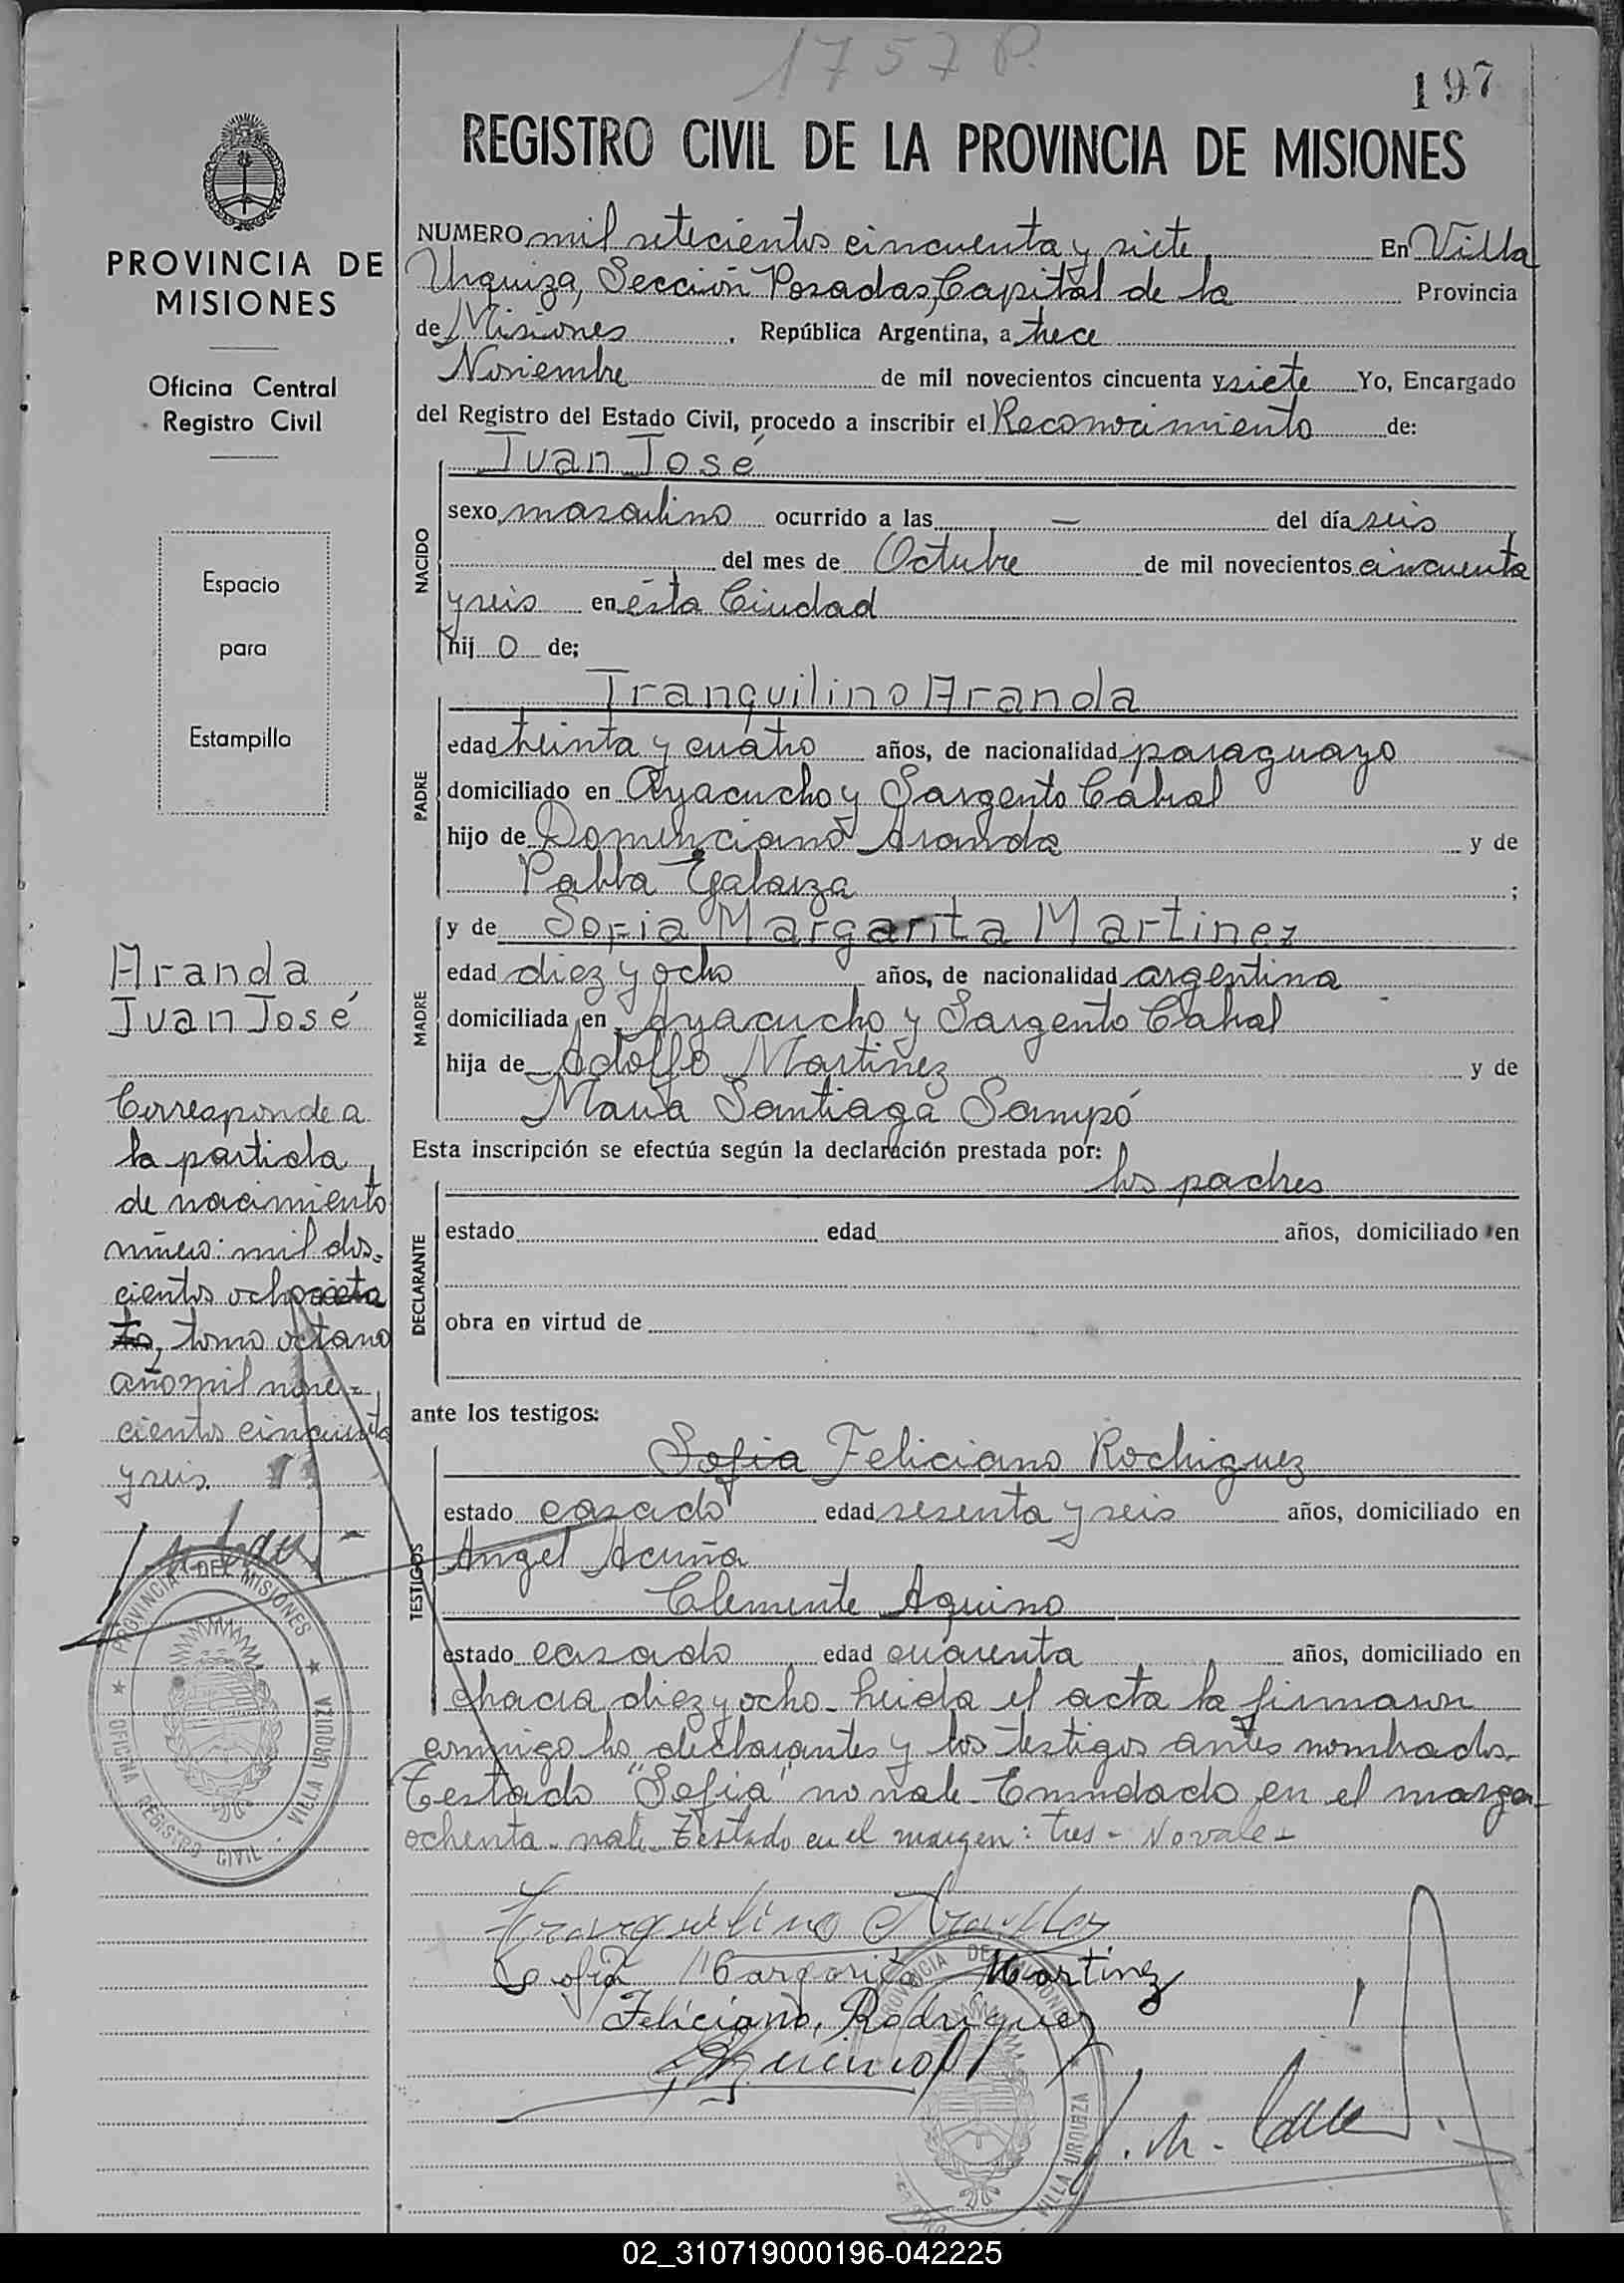 1757 P.
197
REGISTRO CIVIL DE LA PROVINCIA DE MISIONES
PROVINCIA DE
MISIONES
Oficina Central
Registro Civil
Espacio
para
Estampilla
Aranda
Juan José
Corresponde a
la partida
de nacimiento
número: mil dos-
cientos ochenta
tomo octavo
año mil nove-
cientos cincuenta
y seis.
PROVINCIA DE MISIONES
OFICINA REGISTRO CIVIL · VILLA URQUIZA
NUMERO mil setecientos cincuenta y siete En Villa
Urquiza, Sección Posadas, Capital de la Provincia
de Misiones, República Argentina, a trece
Noviembre de mil novecientos cincuenta y siete Yo, Encargado
del Registro del Estado Civil, procedo a inscribir el Reconocimiento de:
Juan José
NACIDO
sexo masculino ocurrido a las — del día seis
del mes de Octubre de mil novecientos cincuenta
y seis en ésta Ciudad
hijo de;
Tranquilino Aranda
PADRE
edad treinta y cuatro años, de nacionalidad paraguayo
domiciliado en Ayacucho y Sargento Cabral
hijo de Domenciano Aranda y de
Pabla Galarza;
MADRE
y de Sofia Margarita Martinez
edad diez y ocho años, de nacionalidad argentina
domiciliada en Ayacucho y Sargento Cabral
hija de Adolfo Martinez y de
Maria Santiaga Sampó
Esta inscripción se efectúa según la declaración prestada por:
los padres
DECLARANTE
estado edad años, domiciliado en
obra en virtud de
ante los testigos:
TESTIGOS
Sofia Feliciano Rodriguez
estado casado edad sesenta y seis años, domiciliado en
Angel Acuña
Clemente Aquino
estado casado edad cuarenta años, domiciliado en
chacra diez y ocho- leida el acta la firmaron
conmigo los declarantes y los testigos antes nombrados-
Testado "Sofia" no vale- Enmendado en el margen-
ochenta- vale- Testado en el margen: tres- No vale-
Tranquilino Aranda
Sofia Margarita Martinez
Feliciano, Rodriguez
PROVINCIA DE MISIONES
VILLA URQUIZA
02_310719000196-042225